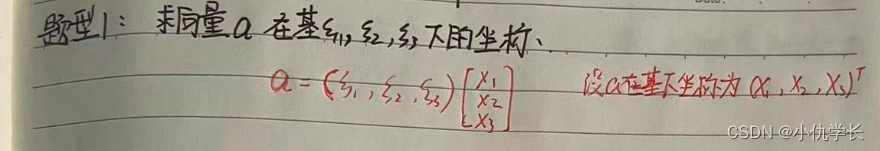 题型1: 求向量a 在基ξ₁,ξ₂,ξ₃下的坐标、
a = (ξ₁,ξ₂,ξ₃) [x₁ x₂ x₃] 设a在基下坐标为 (x₁,x₂,x₃)ᵀ
CSDN @小仇学长